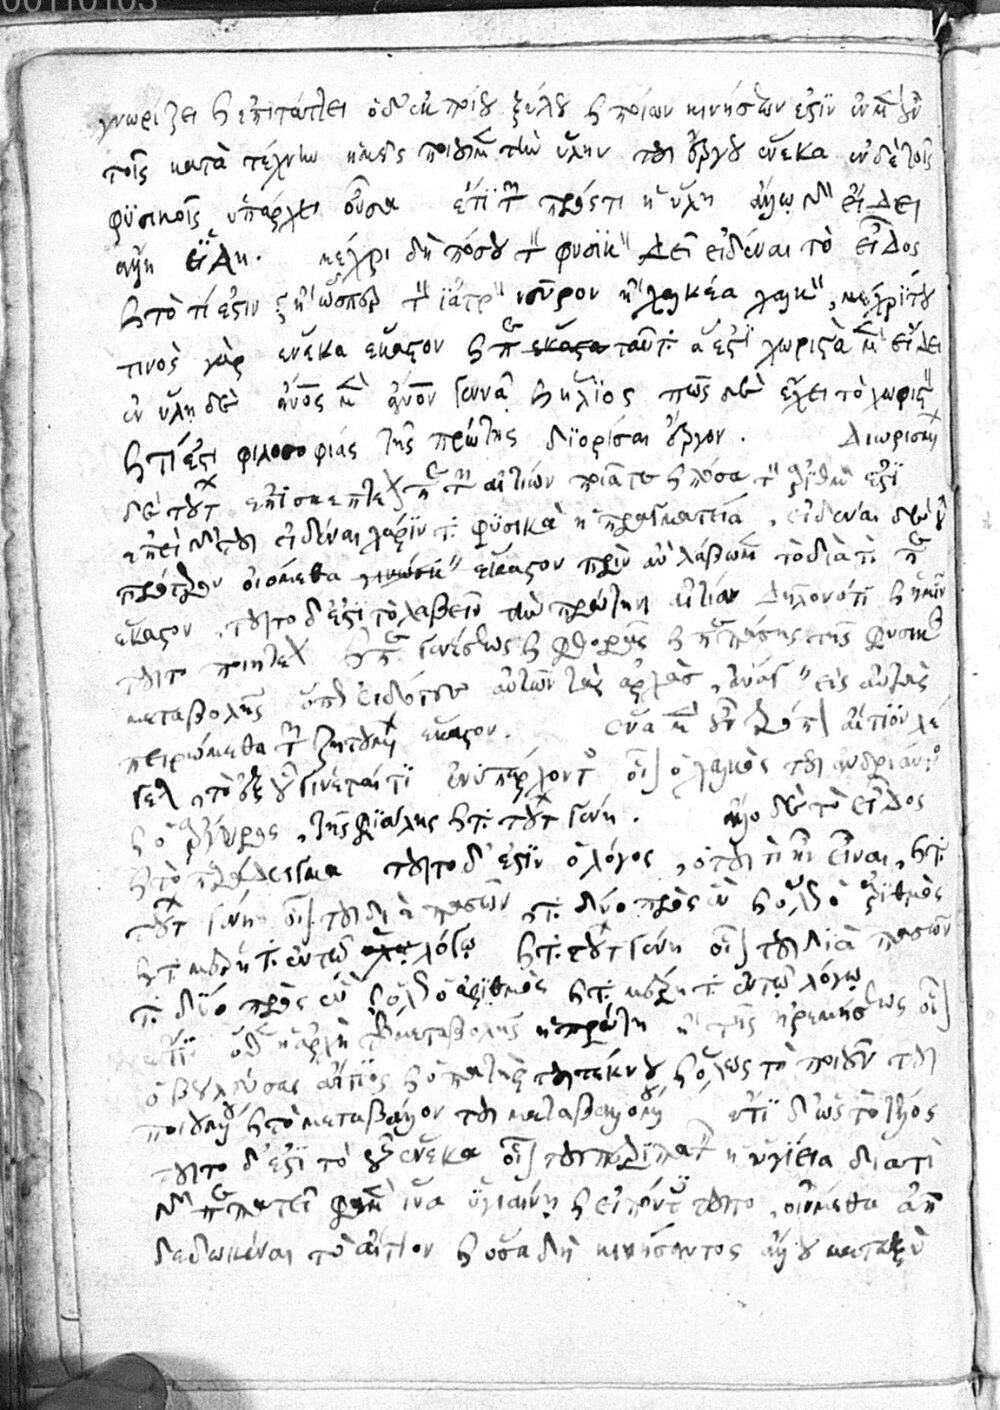 00110103
γνωρίζει καὶ ἐπιτάττει ὁ δ' ἐκ ποίου ξύλου καὶ ποίων κινήσεων ἐστὶν ἐν μὲν οὖν
τοῖς κατὰ τέχνην ἡμεῖς ποιοῦμεν τὴν ὕλην τοῦ ἔργου ἕνεκα ἐν δὲ τοῖς
φυσικοῖς ὑπάρχει οὖσα ἔτι τῶν πρός τι ἡ ὕλη ἄλλῳ γὰρ εἴδει
ἄλλη ὕλη. μέχρι δὴ πόσου τὸν φυσικὸν δεῖ εἰδέναι τὸ εἶδος
καὶ τὸ τί ἐστιν ἢ ὥσπερ τὸν ἰατρὸν νεῦρον ἢ χαλκέα χαλκὸν, μέχρι του
τινὸς γὰρ ἕνεκα ἕκαστον καὶ περὶ ταῦτα ἅ ἐστι χωριστὰ μὲν εἴδει
ἐν ὕλῃ δὲ ἄνθρωπος γὰρ ἄνθρωπον γεννᾷ καὶ ἥλιος πῶς δὲ ἔχει τὸ χωριστὸν
καὶ τί ἐστι φιλοσοφίας τῆς πρώτης διορίσαι ἔργον. Διωρισμένων
δὲ τούτων ἐπισκεπτέον περὶ τῶν αἰτίων ποῖά τε καὶ πόσα τὸν ἀριθμόν ἐστι
ἐπεὶ γὰρ τοῦ εἰδέναι χάριν ἡ πραγματεία, εἰδέναι δὲ οὐ
πρότερον οἰόμεθα ἕκαστον πρὶν ἂν λάβωμεν τὸ διὰ τί περὶ
ἕκαστον, τοῦτο δ' ἐστὶ τὸ λαβεῖν τὴν πρώτην αἰτίαν δηλονότι καὶ ἡμῖν
τοῦτο ποιητέον καὶ περὶ γενέσεως καὶ φθορᾶς καὶ περὶ πάσης τῆς φυσικῆς
μεταβολῆς ὅπως εἰδότες αὐτῶν τὰς ἀρχὰς, ἀνάγειν εἰς αὐτὰς
πειρώμεθα τῶν ζητουμένων ἕκαστον. ἕνα μὲν οὖν τρόπον αἴτιον λέ
γεται, τὸ ἐξ οὗ γίνεταί τι ἐνυπάρχοντος οἷον ὁ χαλκὸς τοῦ ἀνδριάντος
καὶ ὁ ἄργυρος, τῆς φιάλης καὶ τὰ τούτων γένη. ἄλλο δὲ τὸ εἶδος
καὶ τὸ παράδειγμα τοῦτο δ' ἐστὶν ὁ λόγος, ὁ τοῦ τί ἦν εἶναι, καὶ τὰ
τούτων γένη οἷον τοῦ διὰ πασῶν τὰ δύο πρὸς ἓν καὶ ὅλως ὁ ἀριθμὸς
καὶ τὰ μέρη τὰ ἐν τῷ λόγῳ καὶ τὰ τούτων γένη οἷον τοῦ διὰ πασῶν
τὰ δύο πρὸς ἓν καὶ ὅλως ὁ ἀριθμὸς καὶ τὰ μέρη τὰ ἐν τῷ λόγῳ
ἔτι ὅθεν ἡ ἀρχὴ τῆς μεταβολῆς ἡ πρώτη ἢ τῆς ἠρεμήσεως οἷον
ὁ βουλεύσας αἴτιος καὶ ὁ πατὴρ τοῦ τέκνου, καὶ ὅλως τὸ ποιοῦν τοῦ
ποιουμένου καὶ τὸ μεταβάλλον τοῦ μεταβαλλομένου ἔτι δ' ὡς τὸ τέλος
τοῦτο δ' ἐστὶ τὸ οὗ ἕνεκα οἷον τοῦ περιπατεῖν ἡ ὑγίεια διὰ τί
γὰρ περιπατεῖ φαμὲν ἵνα ὑγιαίνῃ καὶ εἰπόντες τοῦτο, οἰόμεθα ἀπο
δεδωκέναι τὸ αἴτιον καὶ ὅσα δὴ κινήσαντος ἄλλου μεταξὺ